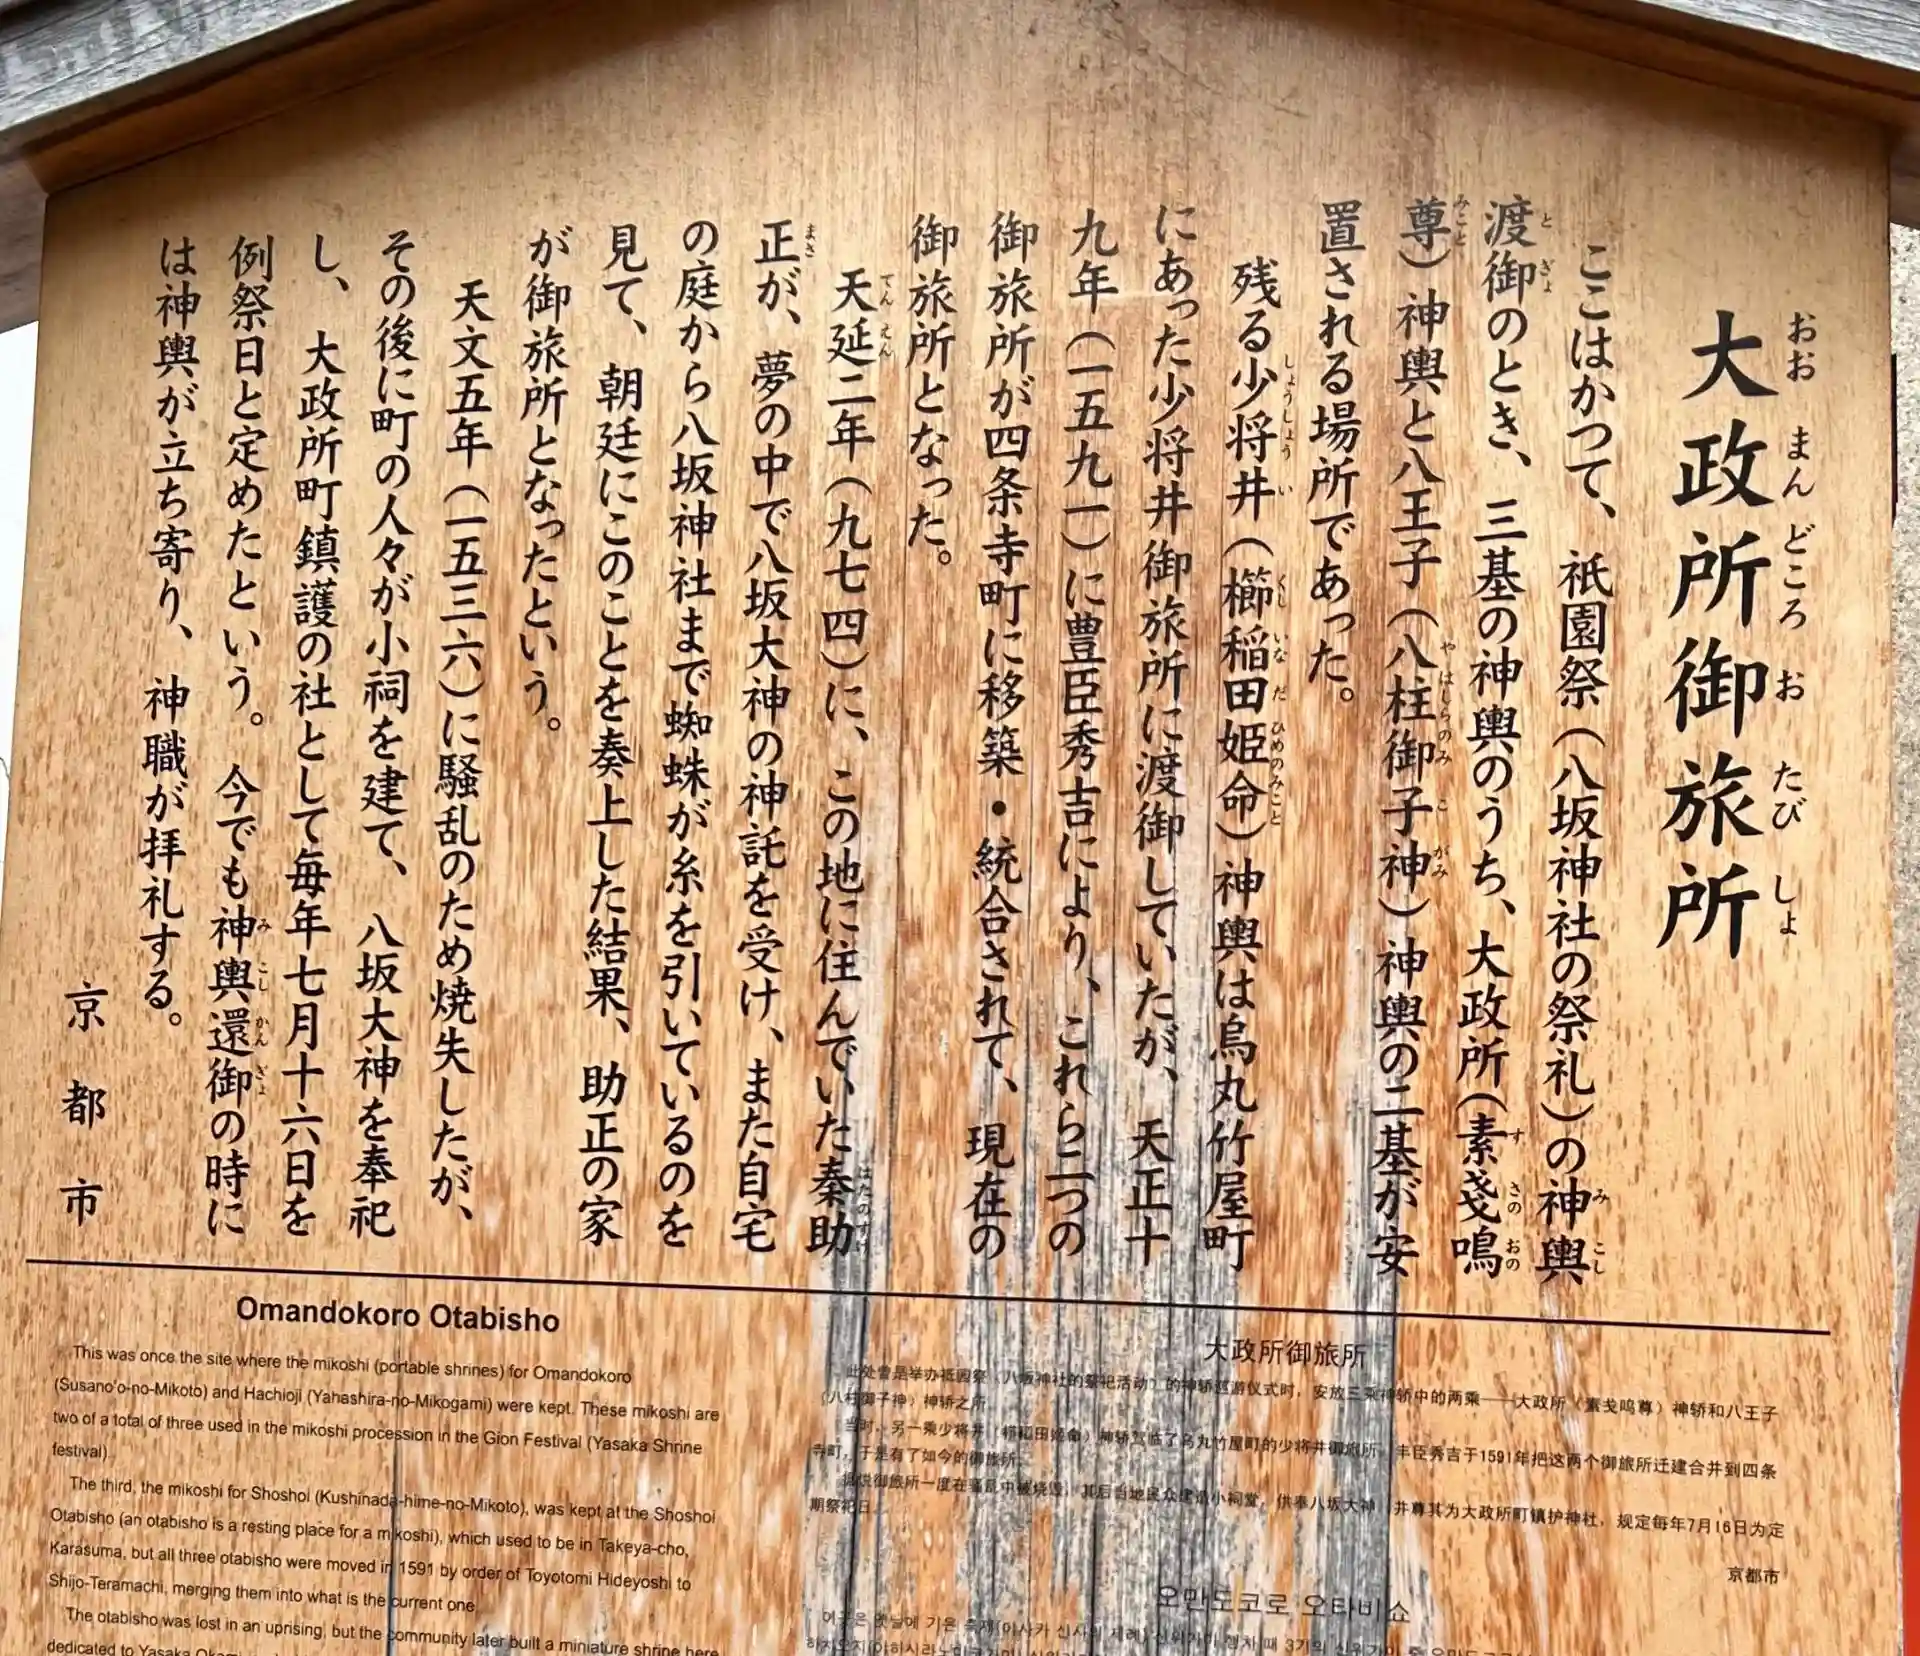 大政所御旅所
おお まん どころ お たび しょ
ここはかつて、祇園祭（八坂神社の祭礼）の神輿
渡御のとき、三基の神輿のうち、大政所（素戔嗚
尊）神輿と八王子（八柱御子神）神輿の二基が安
置される場所であった。
残る少将井（櫛稲田姫命）神輿は烏丸竹屋町
にあった少将井御旅所に渡御していたが、天正十
九年（一五九一）に豊臣秀吉により、これら二つの
御旅所が四条寺町に移築・統合されて、現在の
御旅所となった。
天延二年（九七四）に、この地に住んでいた秦助
正が、夢の中で八坂大神の神託を受け、また自宅
の庭から八坂神社まで蜘蛛が糸を引いているのを
見て、朝廷にこのことを奏上した結果、助正の家
が御旅所となったという。
天文五年（一五三六）に騒乱のため焼失したが、
その後に町の人々が小祠を建て、八坂大神を奉祀
し、大政所町鎮護の社として毎年七月十六日を
例祭日と定めたという。今でも神輿還御の時に
は神輿が立ち寄り、神職が拝礼する。
京都市
Omandokoro Otabisho
This was once the site where the mikoshi (portable shrines) for Omandokoro
(Susano'o-no-Mikoto) and Hachioji (Yahashira-no-Mikogami) were kept. These mikoshi are
two of a total of three used in the mikoshi procession in the Gion Festival (Yasaka Shrine
festival).
The third, the mikoshi for Shoshoi (Kushinada-hime-no-Mikoto), was kept at the Shoshoi
Otabisho (an otabisho is a resting place for a mikoshi), which used to be in Takeya-cho,
Karasuma, but all three otabisho were moved in 1591 by order of Toyotomi Hideyoshi to
Shijo-Teramachi, merging them into what is the current one.
The otabisho was lost in an uprising, but the community later built a miniature shrine here
dedicated to Yasaka
大政所御旅所
此处曾是举办祗园祭（八坂神社的祭祀活动）的神轿巡游仪式时，安放三乘神轿中的两乘——大政所（素戈鸣尊）神轿和八王子
（八柱御子神）神轿之所
当时，另一乘少将井（栉稻田姬命）神轿驾临了乌丸竹屋町的少将井御旅所 丰臣秀吉于1591年把这两个御旅所迁建合并到四条
寺町，于是有了如今的御旅所。
据说御旅所一度在骚乱中被烧毁，其后当地民众建造小祠堂，供奉八坂大神 并尊其为大政所町镇护神社，规定每年7月16日为定
期祭祀日
京都市
오만도코로 오타비쇼
이곳은 옛날에 기온 축제(야사카 신사의 제례) 때 3기의